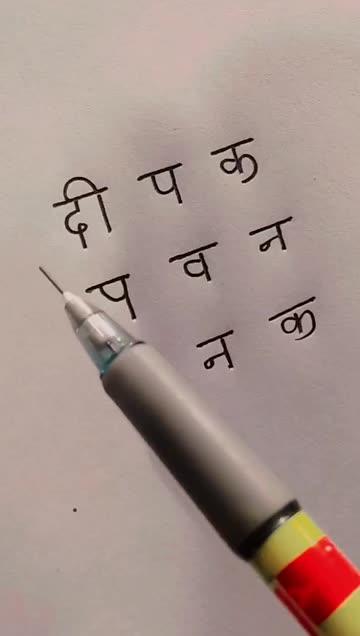 दी प क
प व न
न क